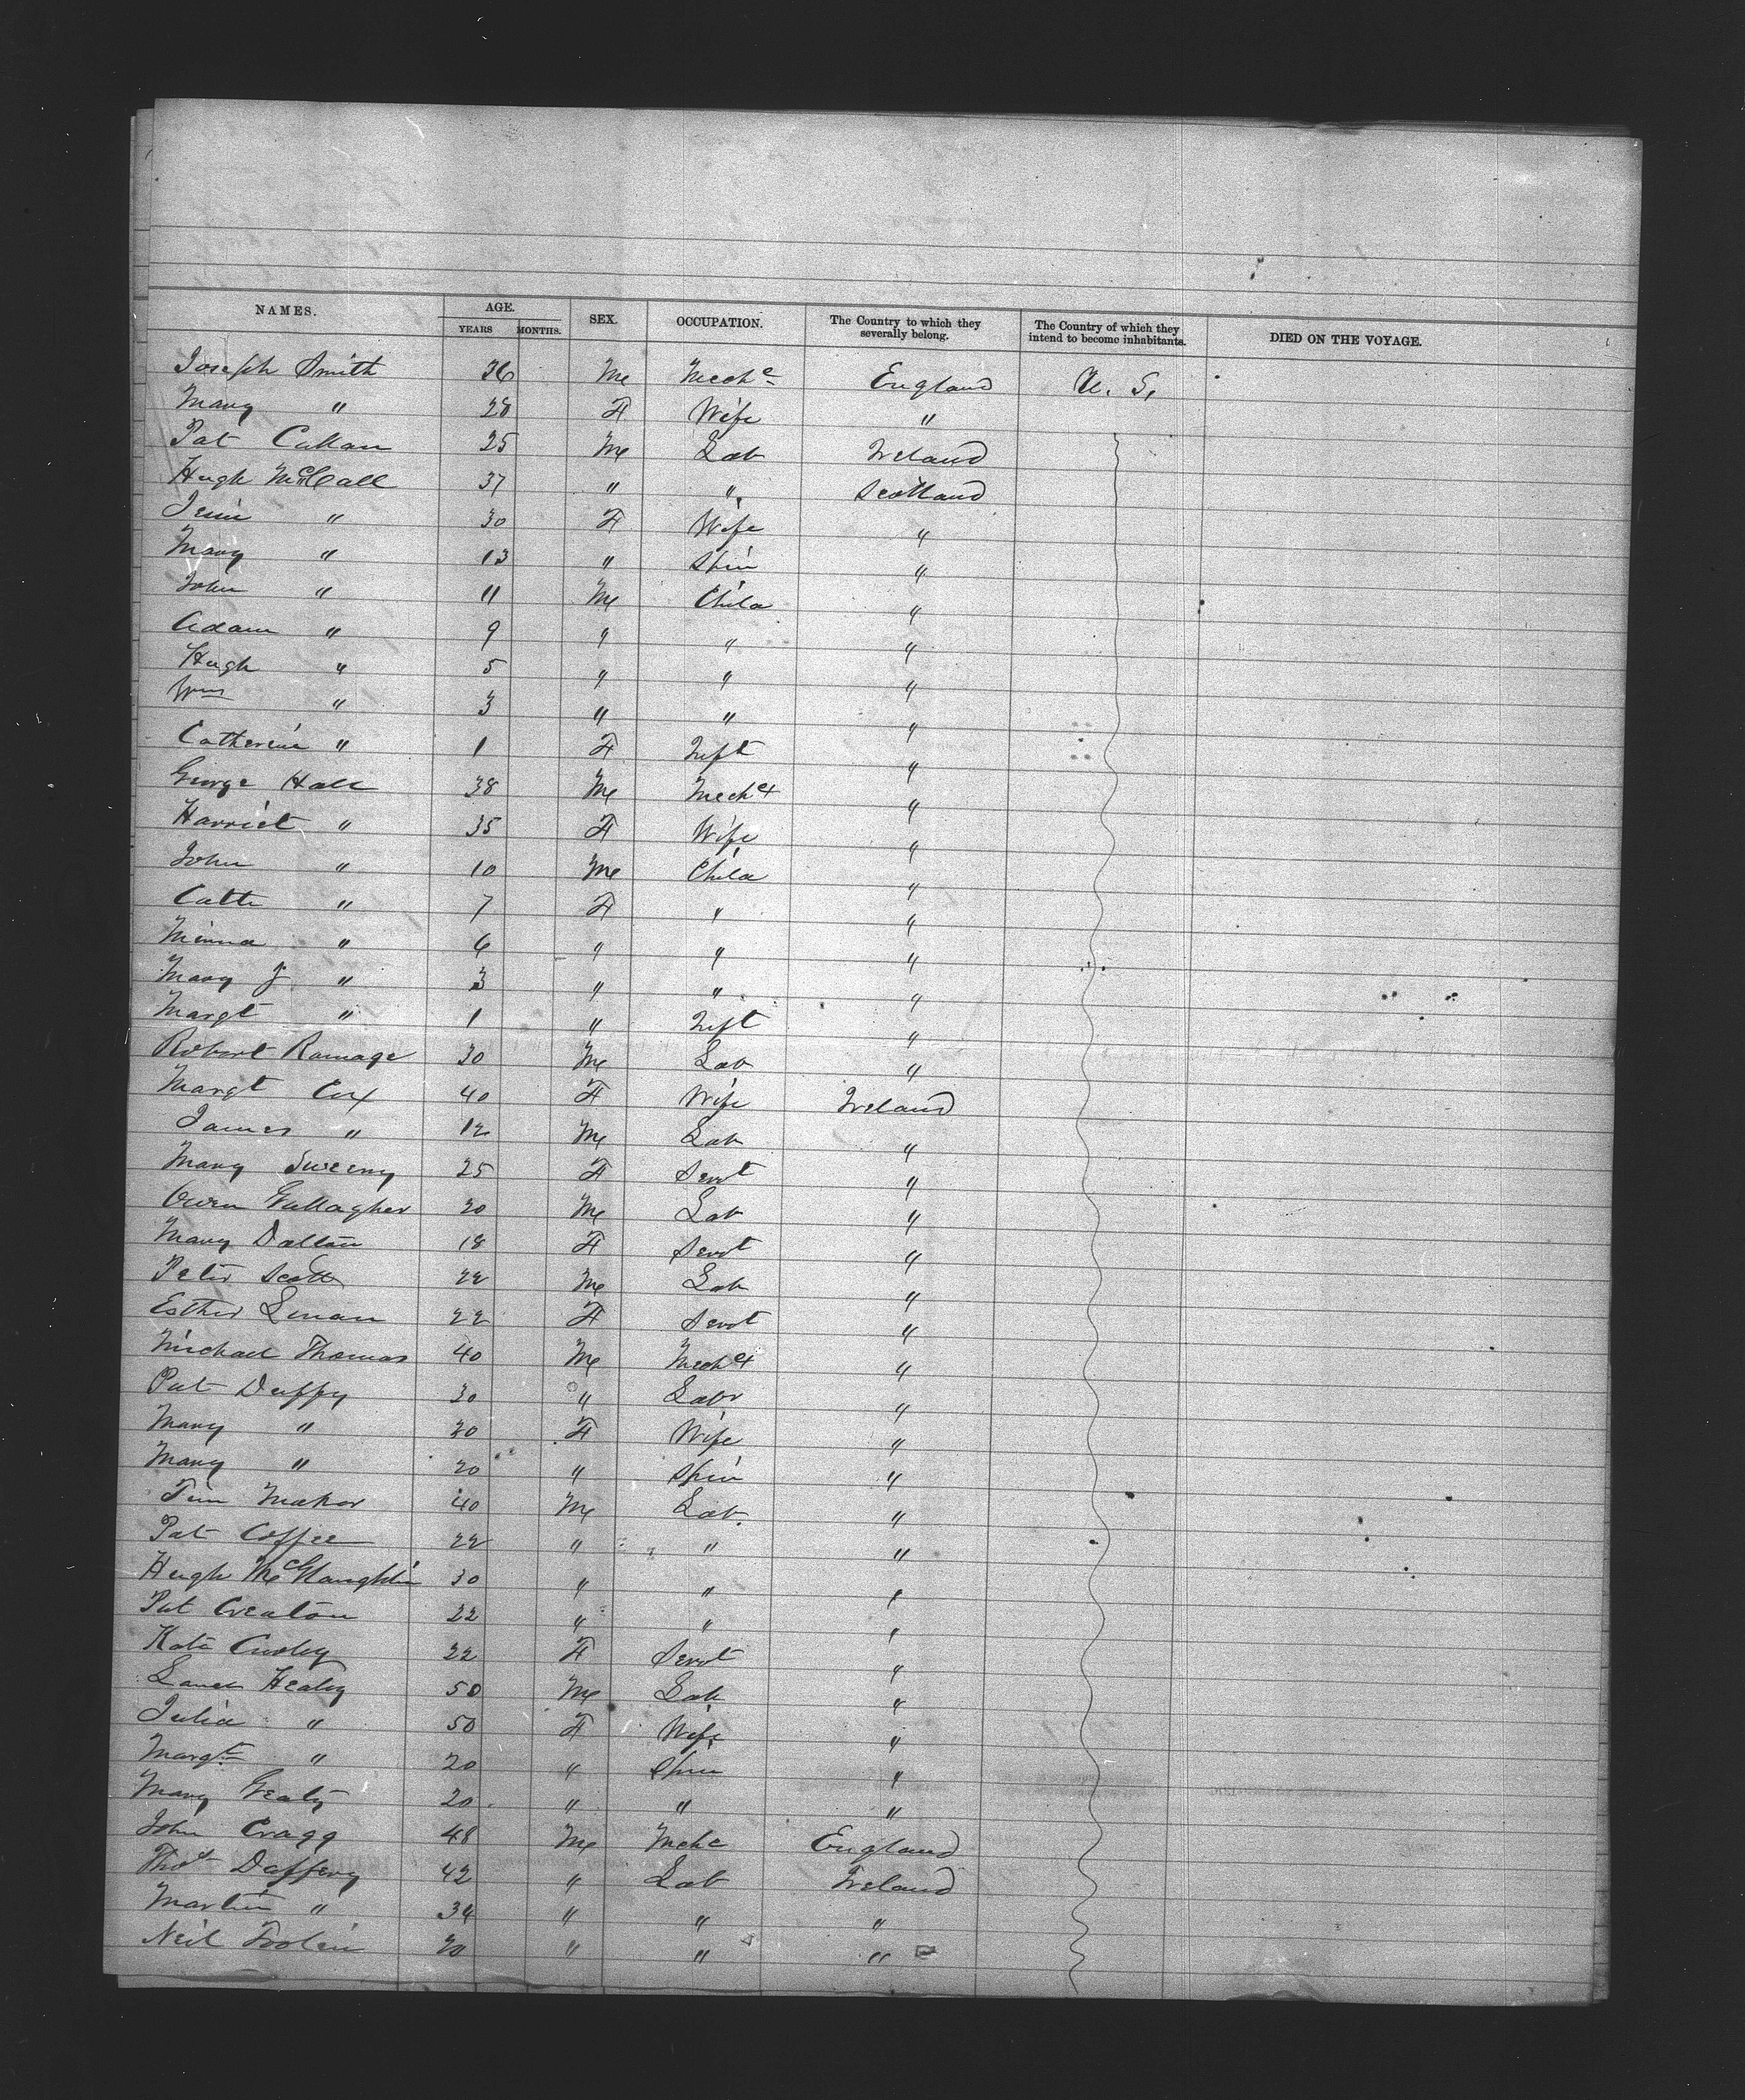 NAMES. AGE. SEX. OCCUPATION. The Country to which they severally belong. The Country of which they intend to become inhabitants. DIED ON THE VOYAGE.
YEARS MONTHS.
Joseph Smith 36 Me Mechc England U. S,
Mary " 28 F Wife "
Pat Callan 25 Me Lab Ireland
Hugh McCall 37 " " Scotland
Jessie " 30 F Wife "
Mary " 13 " Spin "
John " 11 Me Child "
Adam " 9 " " "
Hugh " 5 " " "
Wm " 3 " " "
Catherine " 1 F Inft "
George Hall 38 Me Mech "
Harriet " 35 F Wife "
John " 10 Me Child "
Cath " 7 F " "
Minna " 6 " " "
Mary J " 3 " " "
Margt " 1 " Inft "
Robert Ramage 30 Me Lab "
Margt Cox 40 F Wife Ireland
James " 12 Me Lab "
Mary Sweeny 25 F Servt "
Owen Gallagher 20 Me Lab "
Mary Dalton 18 F Servt "
Peter Scott 22 Me Lab "
Esther 22 F Servt "
Michael Thomas 40 Me Mech "
Pat Duffy 30 " Labr "
Mary " 30 F Wife "
Mary " 20 " Spin "
Tim Mahor 40 Me Lab. "
Pat Coffee 22 " " "
Hugh McGlaughlin 30 " " "
Pat Creaton 22 " " "
Kate 22 F Servt "
Healy 50 Me Lab "
Julia " 50 F Wife "
Margt " 20 " Spin "
Mary Gealy 20 " " "
John Cragg 48 Me Mehc England
Thos Daffery 42 " Lab Ireland
Martin " 34 " " "
Neil 20 " " "